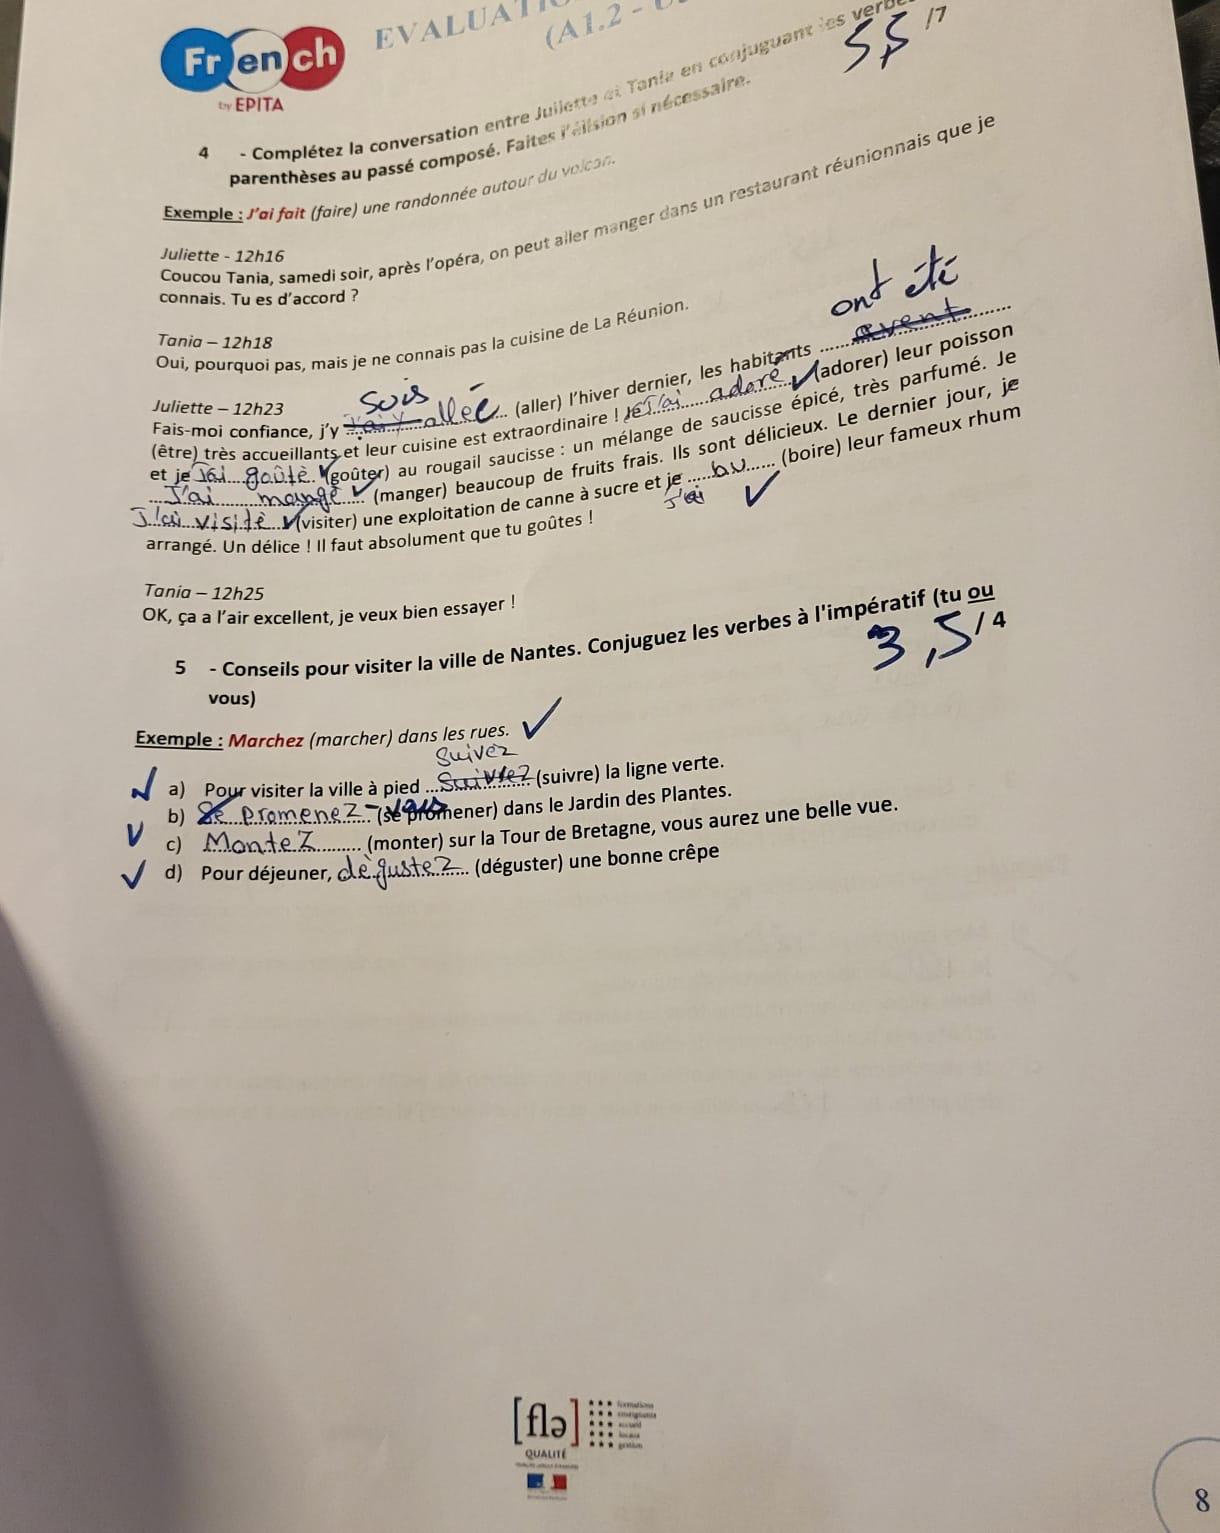 French
by EPITA
EVALUATIO
(A1.2 -
5,5 /7
4 - Complétez la conversation entre Juliette et Tania en conjuguant les verbes
parenthèses au passé composé. Faites l'élision si nécessaire.
Exemple : J'ai fait (faire) une randonnée autour du volcan.
Juliette - 12h16
Coucou Tania, samedi soir, après l'opéra, on peut aller manger dans un restaurant réunionnais que je
connais. Tu es d'accord ?
Tania – 12h18
Oui, pourquoi pas, mais je ne connais pas la cuisine de La Réunion.
Juliette – 12h23
suis
ont été
Fais-moi confiance, j'y j'ai y allée (aller) l'hiver dernier, les habitants avent
(être) très accueillants et leur cuisine est extraordinaire ! Je J'ai adoré (adorer) leur poisson
et je J'ai goûtè (goûter) au rougail saucisse : un mélange de saucisse épicé, très parfumé. Je
J'ai mangé (manger) beaucoup de fruits frais. Ils sont délicieux. Le dernier jour, je
J'ai visitè (visiter) une exploitation de canne à sucre et je bu (boire) leur fameux rhum
J'ai
arrangé. Un délice ! Il faut absolument que tu goûtes !
Tania – 12h25
OK, ça a l'air excellent, je veux bien essayer !
5 - Conseils pour visiter la ville de Nantes. Conjuguez les verbes à l'impératif (tu ou
vous)
3,5 / 4
Exemple : Marchez (marcher) dans les rues.
suivez
a) Pour visiter la ville à pied Suivrez (suivre) la ligne verte.
b) Se promenez -vous (se promener) dans le Jardin des Plantes.
c) Montez (monter) sur la Tour de Bretagne, vous aurez une belle vue.
d) Pour déjeuner, dègustez (déguster) une bonne crêpe
[flə]
QUALITÉ
formations
enseignants
accueil
locaux
gestion
8